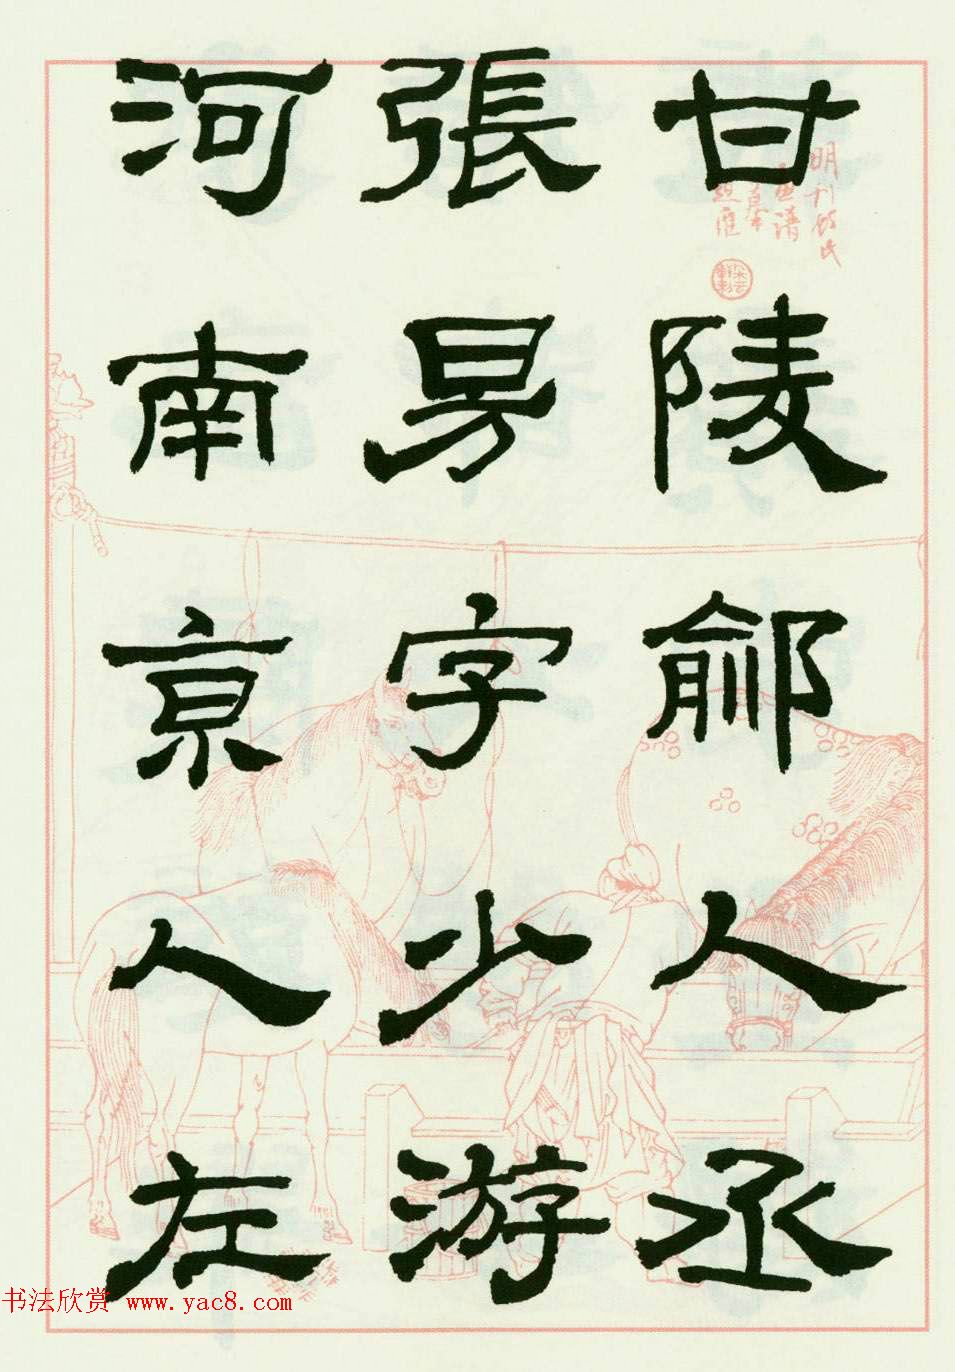 甘陵鄃人丞
張昜字少游
河南亰人左
明刊顧氏
畫譜
书法欣赏 www.yac8.com